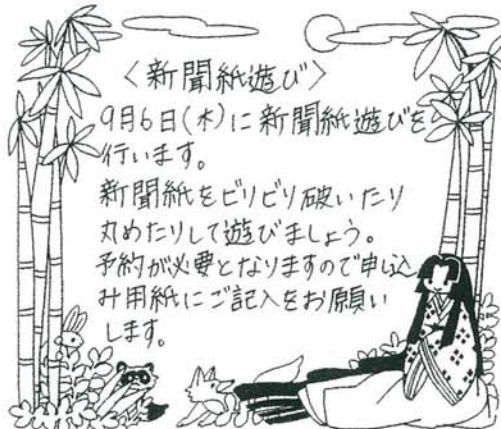 〈新聞紙遊び〉
9月6日(木)に新聞紙遊びを
行います。
新聞紙をビリビリ破いたり
丸めたりして遊びましょう。
予約が必要となりますので申し込
み用紙にご記入をお願い
します。